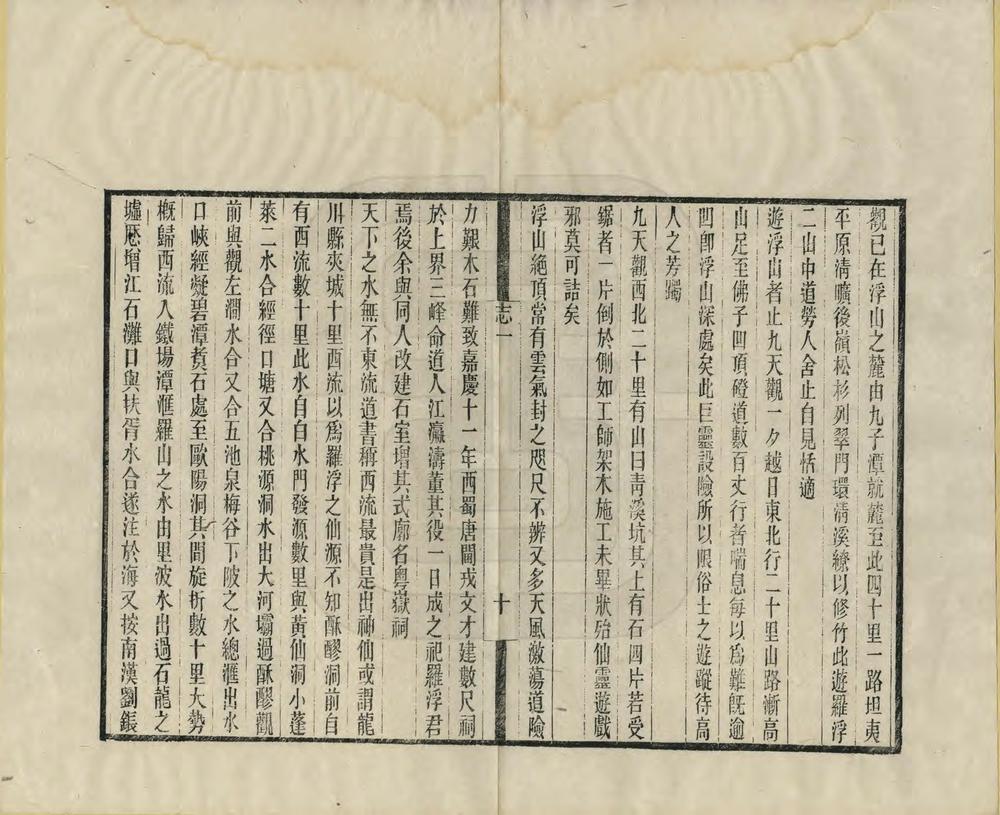 觀已在浮山之麓由九子潭就麓至此四十里一路坦夷
平原清曠後嶺松杉列翠門環清溪繚以修竹此遊羅浮
二山中道勞人舍止自見恬適
遊浮山者止九天觀一夕越日東北行二十里山路漸高
山足至佛子凹頂磴道數百丈行者喘息每以爲難旣逾
凹卽浮山深處矣此巨靈設險所以限俗士之遊蹤待高
人之芳躅
九天觀西北二十里有山曰靑溪坑其上有石四片若受
鋸者一片倒於側如工師架木施工未畢狀殆仙靈遊戲
邪莫可詰矣
浮山絕頂常有雲氣封之咫尺不辨又多天風激蕩道險
志一
十
力艱木石難致嘉慶十一年西蜀唐閫戎文才建數尺祠
於上界三峰命道人江瀛濤董其役一日成之祀羅浮君
焉後余與同人改建石室增其式廓名粵嶽祠
天下之水無不東流道書稱西流最貴是出神仙或謂龍
川縣夾城十里西流以爲羅浮之仙源不知酥醪洞前自
有西流數十里此水自白水門發源數里與黃仙洞小蓬
萊二水合經徑口塘又合桃源洞水出大河壩過酥醪觀
前與觀左澗水合又合五池泉梅谷下陂之水總滙出水
口峽經凝碧潭煑石處至歐陽洞其間旋折數十里大勢
槪歸西流入鐵場潭滙羅山之水由里波水出過石龍之
墟歷增江石灘口與扶胥水合遂注於海又按南漢劉鋹